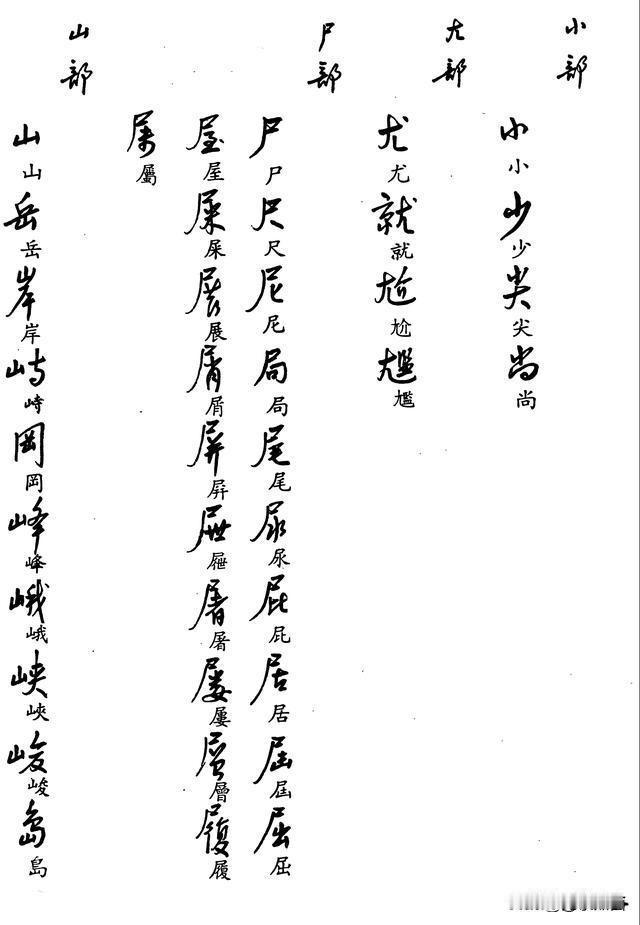 小部
小小少少尖尖尚尚
尢部
尤尤就就尬尬尷尷
尸部
尸尸尺尺尼尼局局尾尾尿尿屁屁居居屆屆屈屈
屋屋屎屎展展屑屑屏屏屜屜屠屠屢屢層層履履
屬屬
山部
山山岳岳岸岸峙峙岡岡峰峰峨峨峽峽峻峻島島